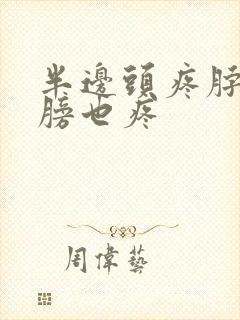 半邊頭疼脖
膀也疼
周偉藝